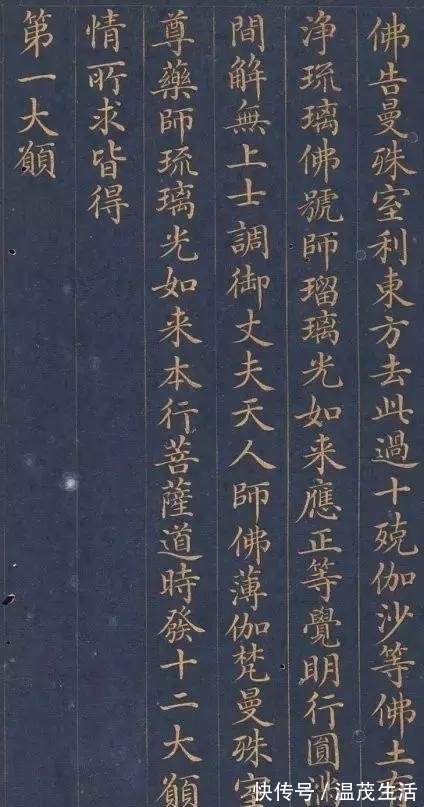 佛告曼殊室利東方去此過十殑伽沙等佛土有
浄琉璃佛號師瑠璃光如来應正等覺明行圓
間解無上士調御丈夫天人師佛薄伽梵曼殊室
尊藥師琉璃光如来本行菩薩道時發十二大願
情所求皆得
第一大願
快传号/温茂生活